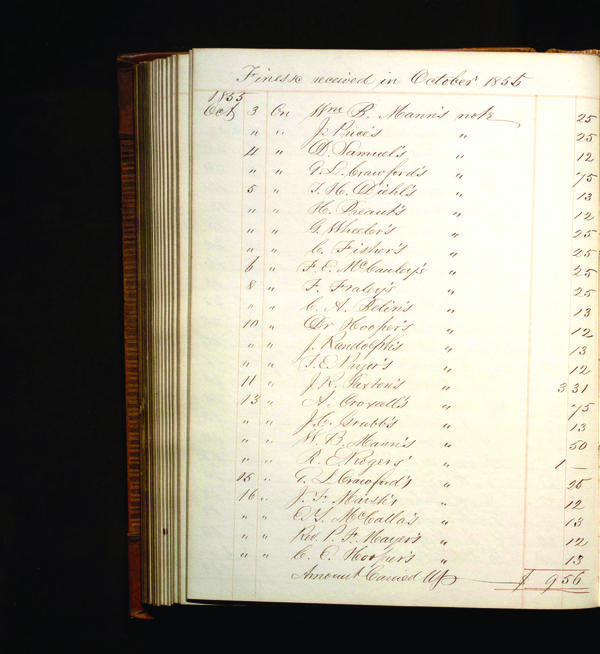 Fines received in October 1855
1855
Oct 3 On Wm B. Mann's note 25
" " J. Price's " 25
4 " D. Samuel's " 12
" " G. L. Crawford's " 75
5 " T. H. Diehl's " 13
" " H. " 12
" " G. Wheeler's " 25
" " C. Fisher's " 25
6 " F. C. McCauley's " 25
8 " F. Fraley's " 25
" " C. A. Belin's " 13
10 " Dr Hooper's " 12
" " J. Randolph's " 13
" " " 12
11 " J. R. Paxton's " 3 31
13 " A. Croxall's " 75
" " J. C. Grubb's " 13
" " W. B. Mann's " 50
" " R. E. Rogers' " 1 —
15 " G. L. Crawford's " 25
16 " J. F. Marsh's " 12
" " McCalla's " 13
" " Rev. P. F. Mayer's " 12
" " C. E. Hooper's " 13
Amount Carried Up $ 9 56